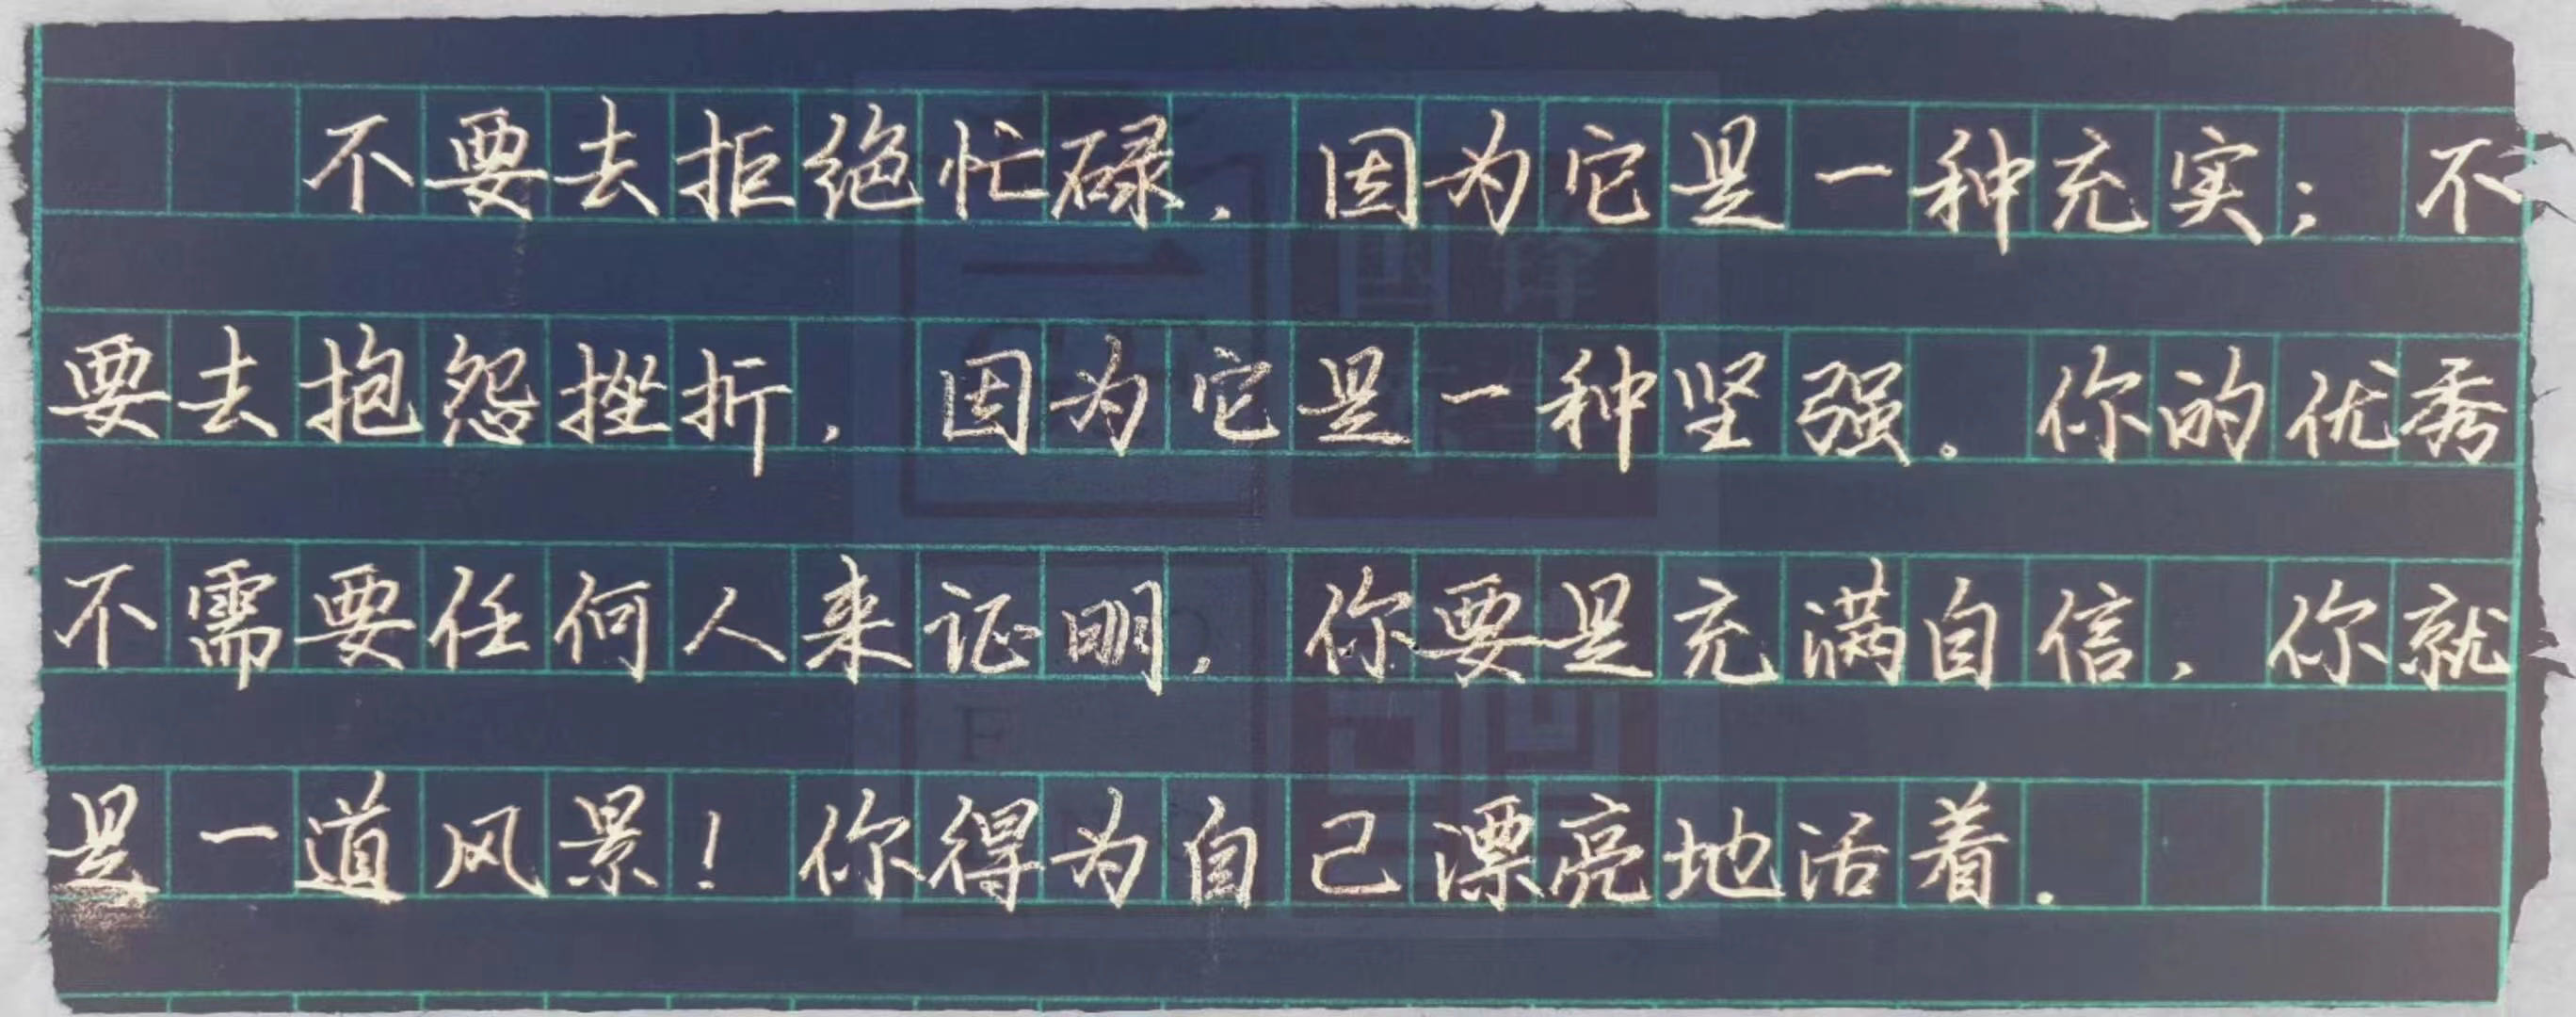 不要去拒绝忙碌，因为它是一种充实；不
要去抱怨挫折，因为它是一种坚强。你的优秀
不需要任何人来证明，你要是充满自信，你就
是一道风景！你得为自己漂亮地活着.